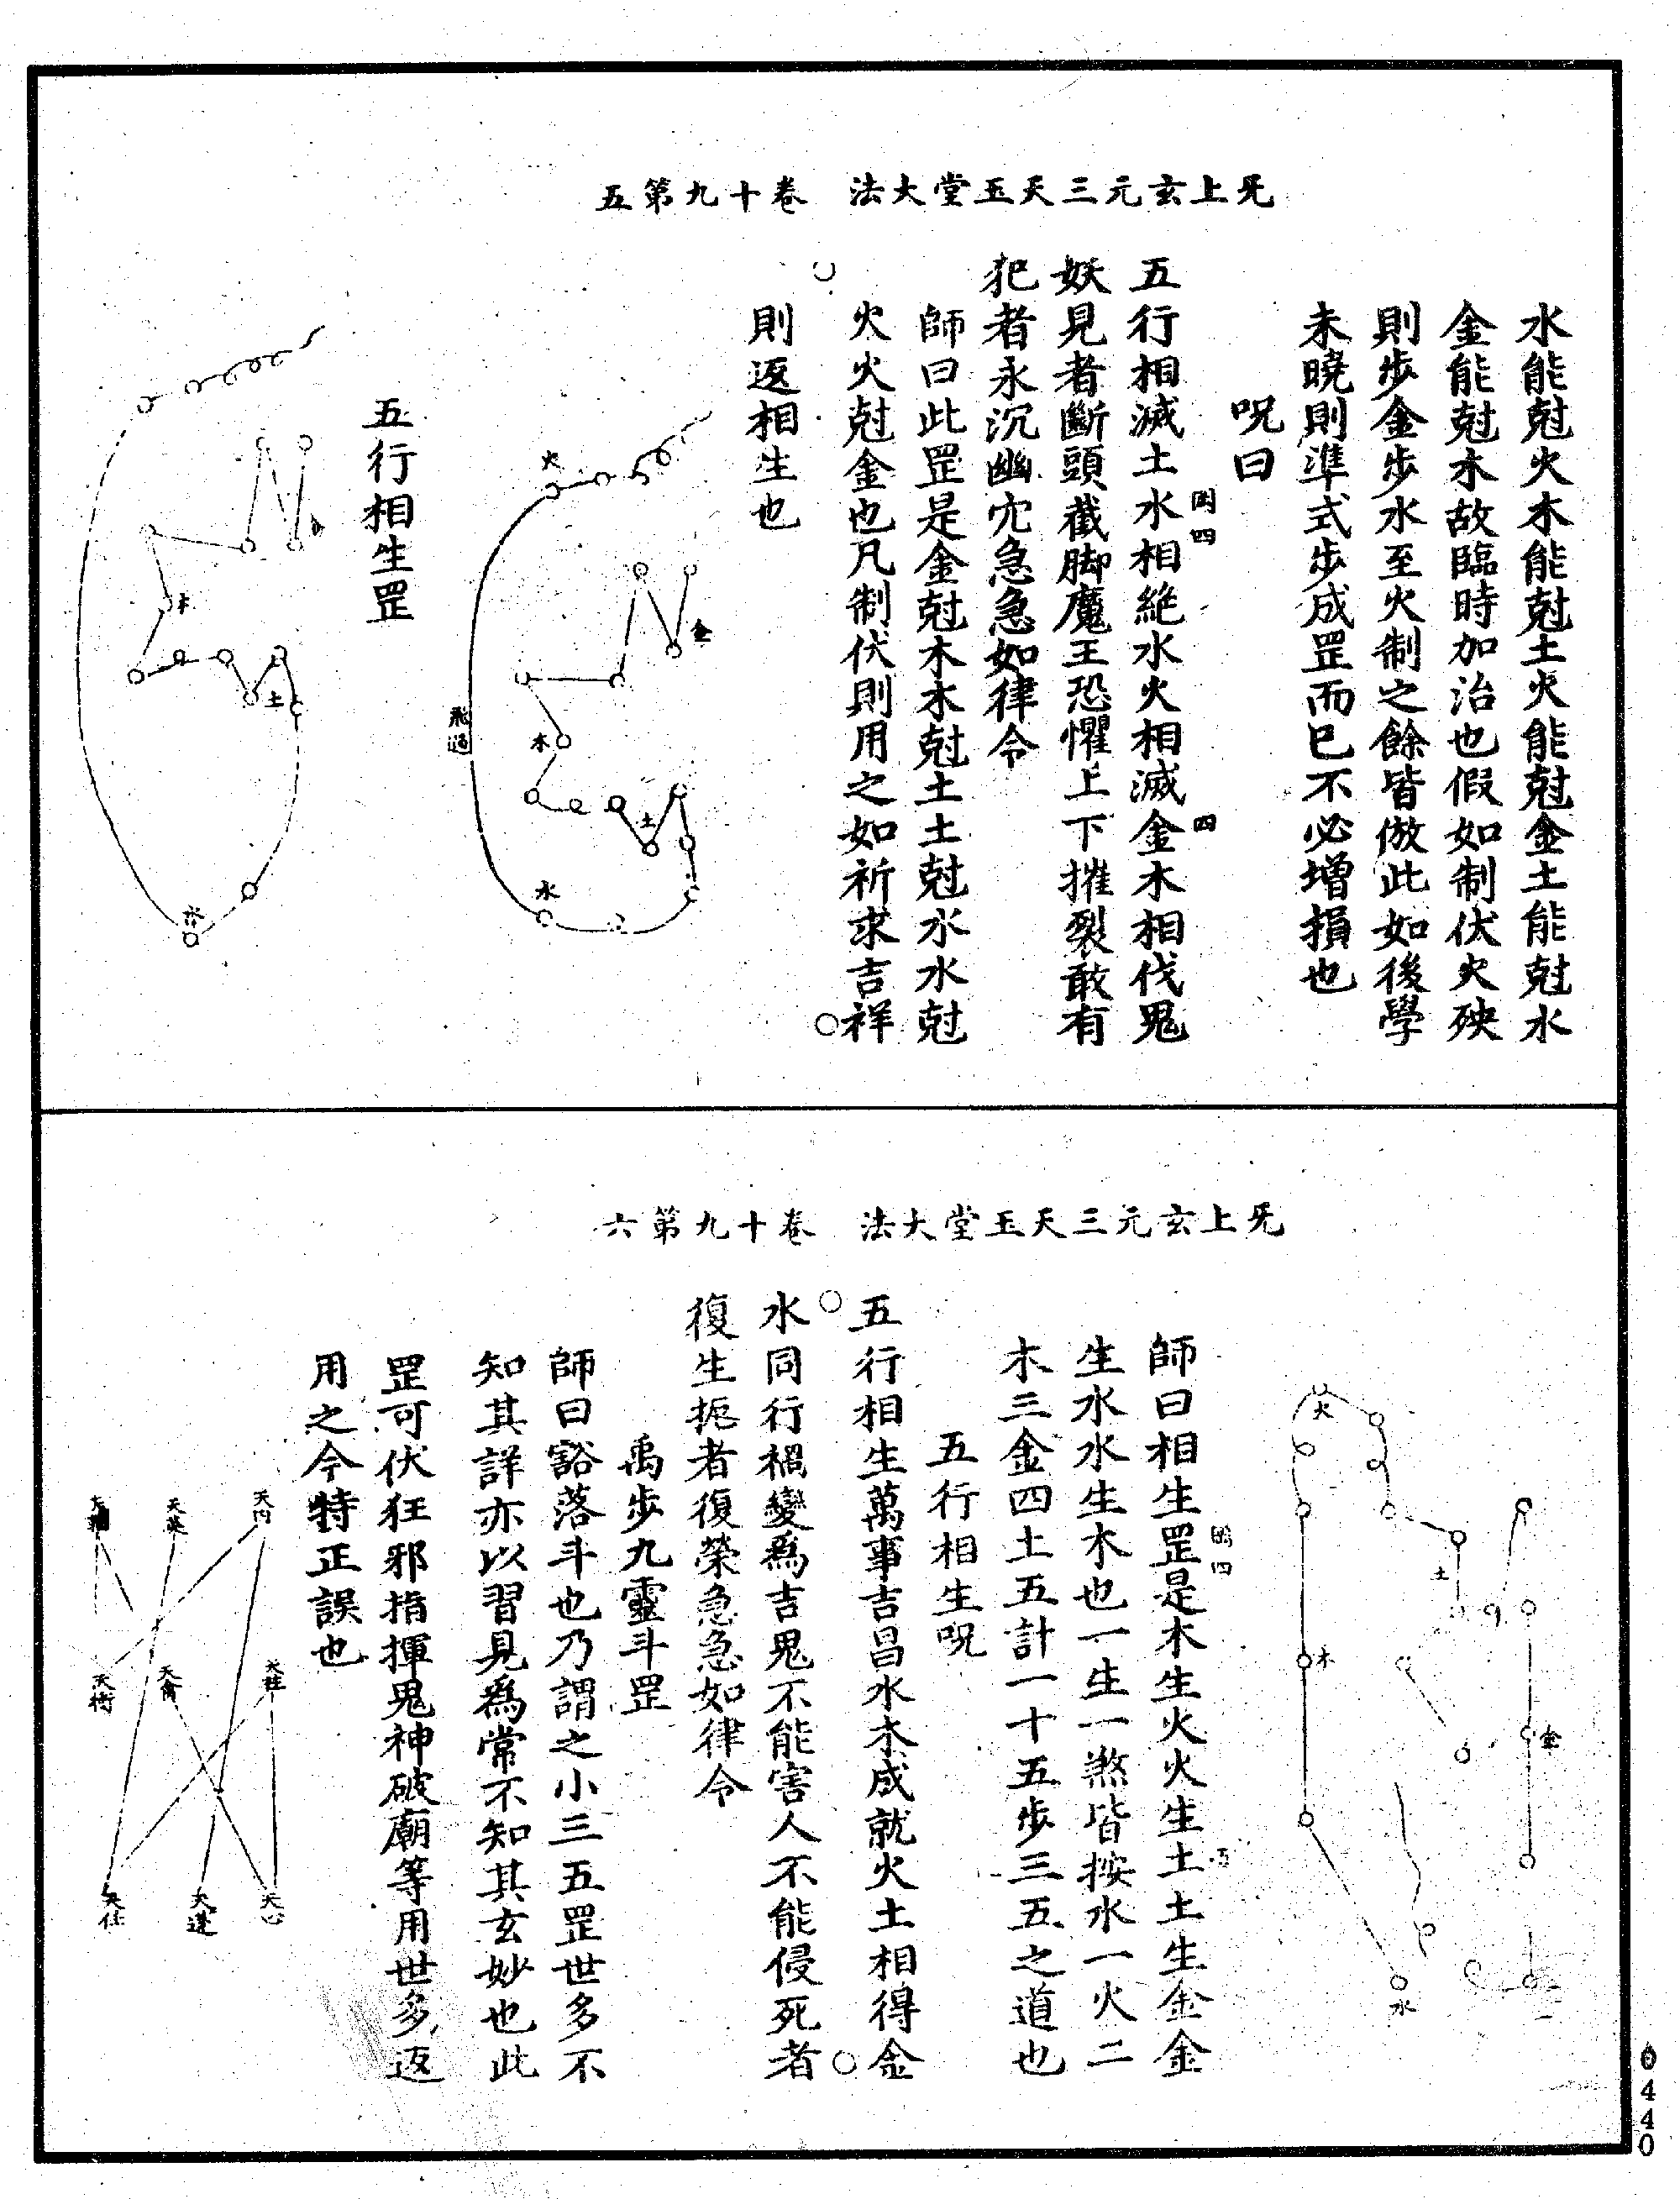 五第九十卷　法大堂玉天三元玄上旡
水能尅火木能尅土火能尅金土能尅水
金能尅木故臨時加治也假如制伏火殃
則步金步水至火制之餘皆倣此如後學
未曉則準式步成罡而已不必增損也
呪曰
五行相滅土水相絕水火相滅金木相伐鬼
妖見者斷頭截脚魔王恐懼上下摧裂敢有
犯者永沉幽穴急急如律令
師曰此罡是金尅木木尅土土尅水水尅
火火尅金也凡制伏則用之如祈求吉祥
則返相生也
火
金
木
土
水
飛過
五行相生罡
木
土
水
六第九十卷　法大堂玉天三元玄上旡
火
土
木
金
水
師曰相生罡是木生火火生土土生金金
生水水生木也一生一煞皆按水一火二
木三金四土五計一十五步三五之道也
五行相生呪
五行相生萬事吉昌水木成就火土相得金
水同行禍變爲吉鬼不能害人不能侵死者
復生扼者復榮急急如律令
禹步九靈斗罡
師曰豁落斗也乃謂之小三五罡世多不
知其詳亦以習見爲常不知其玄妙也此
罡可伏狂邪指揮鬼神破廟等用世多返
用之今特正誤也
天內
天英
天輔
天柱
天禽
天衝
天心
天蓬
天任
0440